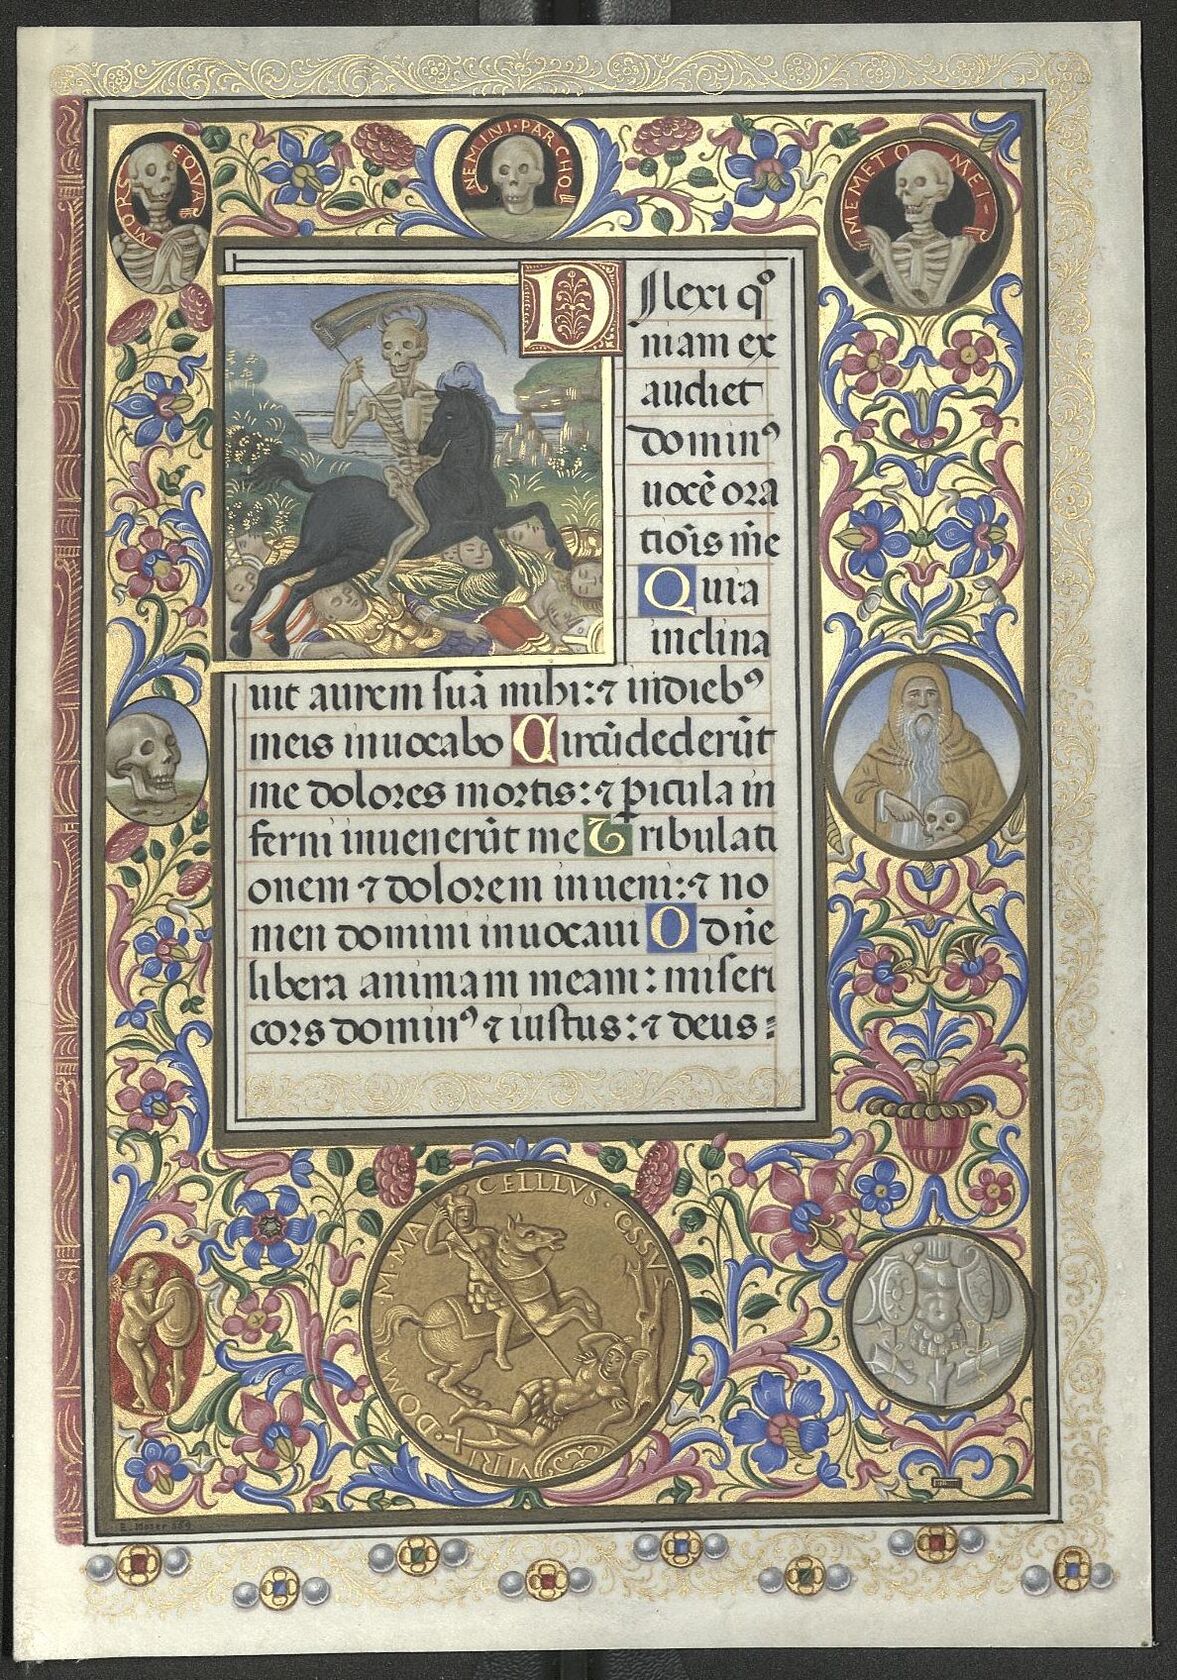 MORS EQVA
NEMINI·PARCHO
MEMETO MEI
Dilexi qº
niam ex
audiet
dominꝰ
uocē ora
tiōis mīe
Quia
inclina
uit aurem suā mihi: ⁊ indiebꝰ
meis inuocabo Circūdederūt
me dolores mortis: ⁊ ꝑicula in
ferni inuenerūt me Tribulati
onem ⁊ dolorem inueni: ⁊ no
men domini inuocaui O dn̄e
libera animam meam: miseri
cors dominꝰ ⁊ iustus: ⁊ deus
DOMA·M·MA CELLVS·OSSV VIRI